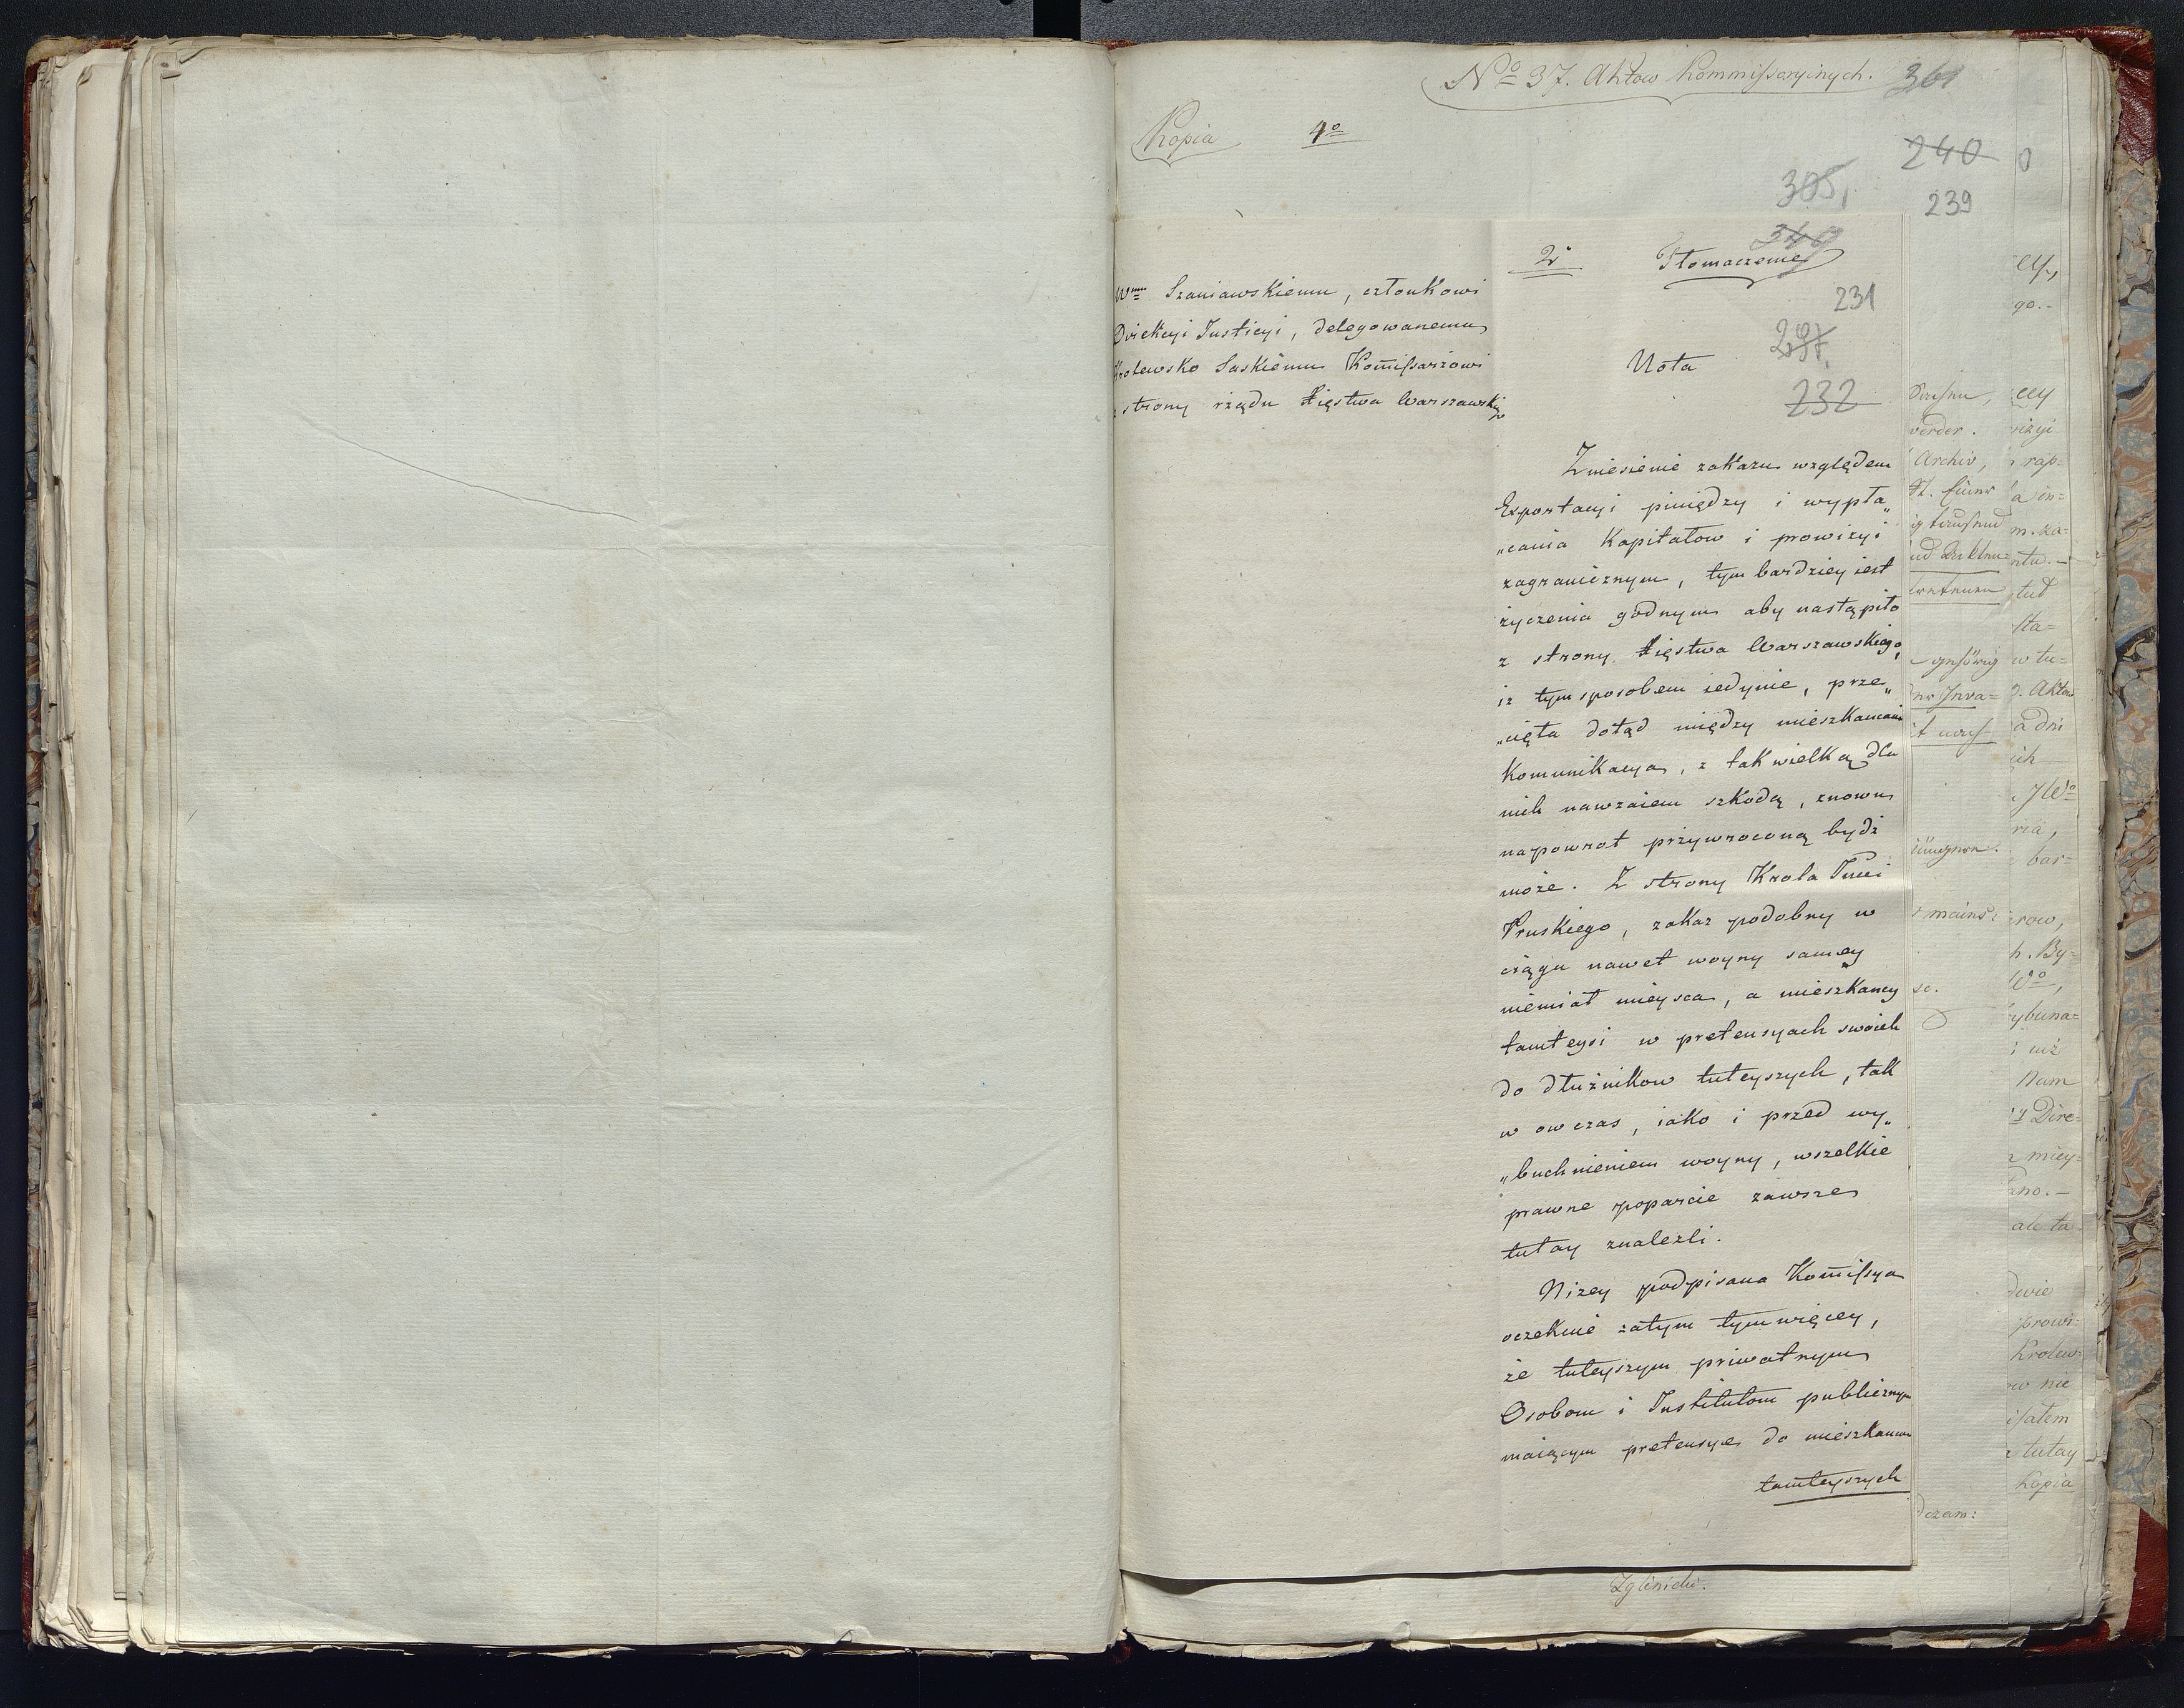 No 37. Aktow Kommissaryinych. 361
Kopia 4o
240
305,
239
340
2o Tłomaczenie
231
297.
232
Wmu Szaniawskiemu, członkowi
Dyrekcyi Justicyi, delegowanemu
Krolewsko Saskiému Komissarzowi
z strony rządu Xięstwa Warszawskiego
Nota
Zniesienie zakazu względem
Exportacyi pieniędzy i wypła„
„cania Kapitałow i prowizyi
zagranicznym, tym bardziey iest
życzenia godnym aby nastąpiło
z strony Xięstwa Warszawskiego,
iż tym sposobem iedynie, prze„
„cięta dotąd między mieszkancami
Komunikacya, z tak wielką dla
nich nawzaiem szkodą, znowu
napowrot przywroconą bydź
może. Z strony Krola Jmci
Pruskiego, zakaz podobny w
ciągu nawet woyny samey
niemiał mieysca, a mieszkancy
tamteysi w pretensyach swoich
do dłużnikow tuteyszych, tak
w ow czas, iako i przed wy„
„buchnieniem woyny, wszelkie
prawne poparcie zawsze
tutay znalezli.
Niżey podpisana Komissya
oczekuie zatym tym więcey,
że tuteyszym priwatnym
Osobom i Institutom publicznym
maiącym pretensye do mieszkancow
tamteyszych
Zglinicki.
ey,
go.-
cey
rizyi
Archiv, rap=
a in=
m. za=
ntu.-
tud
sta=
w tu=
Inva= Aktow
a dni
ich
JWo
ria,
bar=
row,
h. By=
Wo,
ybuna=
i uż
Nam
Dire=
z miey=
zno.-
ale ta
dwie
prowi=
Krolew=
ow nie
isałem
tutay
Kopia